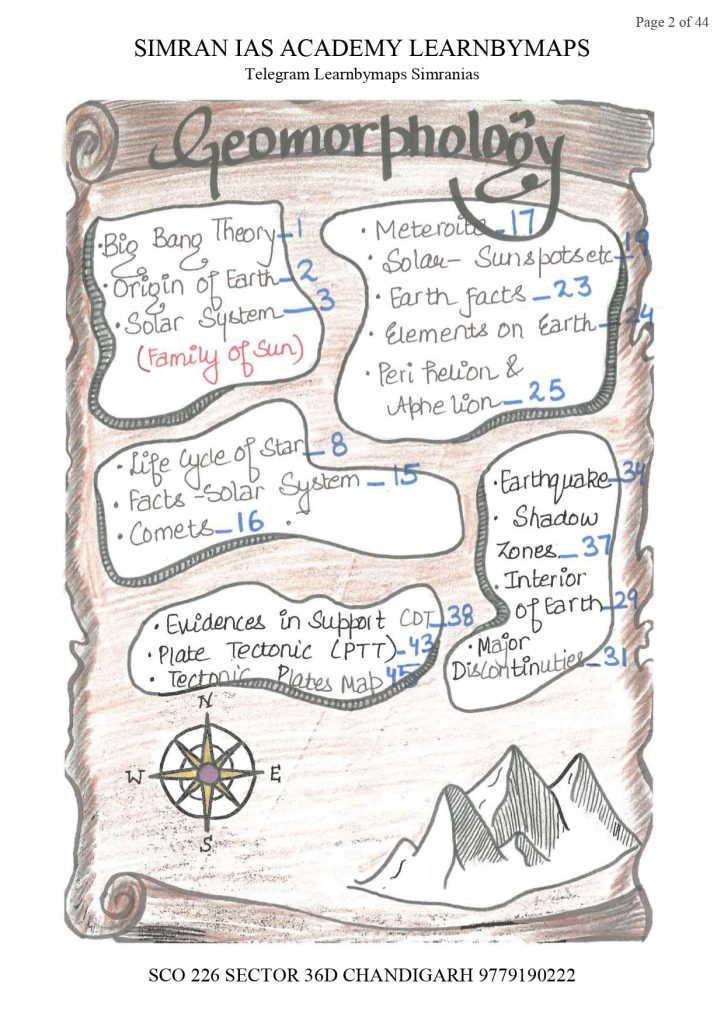 Page 2 of 44
SIMRAN IAS ACADEMY LEARNBYMAPS
Telegram Learnbymaps Simranias
Geomorphology
• Big Bang Theory - 1
• Origin of Earth - 2
• Solar System - 3
(Family of Sun)
• Meteroite - 17
• Solar - Sunspots etc - 19
• Earth facts - 23
• Elements on Earth - 24
• Peri helion &
Aphelion - 25
• Life Cycle of Star - 8
• Facts - Solar System - 15
• Comets - 16
• Earthquake - 34
• Shadow
Zones - 37
• Interior
of Earth - 29
• Major
Discontinuties - 31
• Evidences in Support CDT - 38
• Plate Tectonic (PTT) - 43
• Tectonic Plates Map 45
N
W E
S
SCO 226 SECTOR 36D CHANDIGARH 9779190222